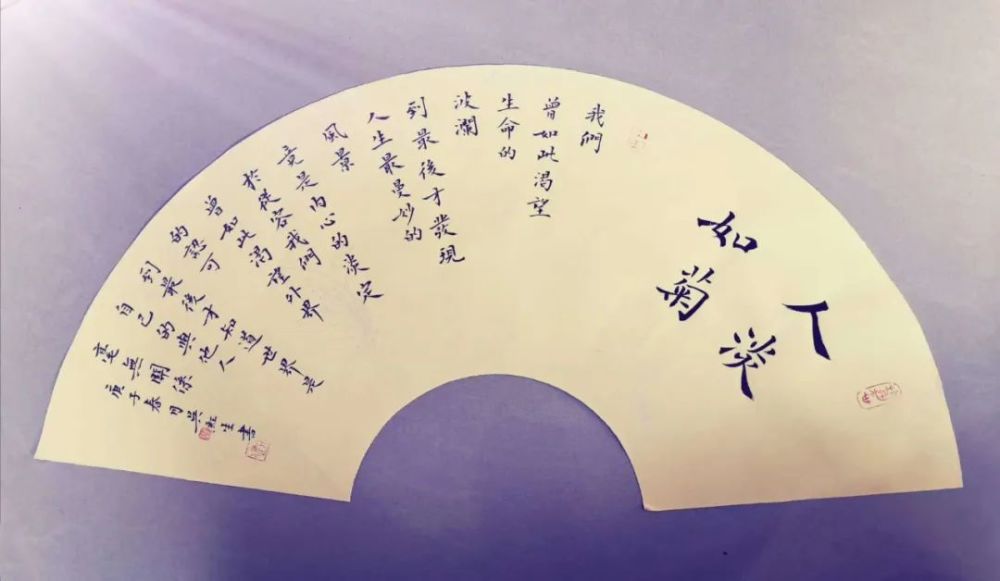 人淡
如菊
我們
曾如此渴望
生命的
波瀾
到最後才發現
人生最曼妙的
風景
竟是内心的淡定
於從容我們
曾如此渴望外界
的認可
到最後才知道世界是
自己的與他人
毫無關係
庚子春月吳生書